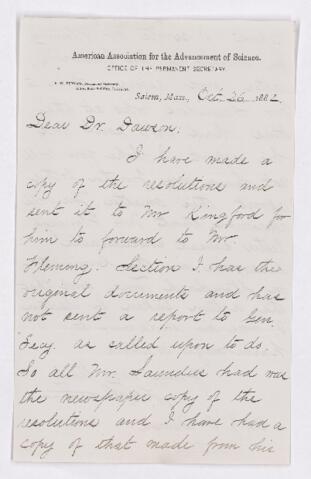 American Association for the Advancement of Science.
OFFICE OF THE PERMANENT SECRETARY.
Salem, Mass., Oct. 26 1882.
Dear Dr. Dawson:
I have made a
copy of the resolutions and
sent it to Mr Kingford for
him to forward to Mr.
Fleming. Section I has the
original documents and has
not sent a report to Gen.
Secy. as called upon to do.
So all Mr. Saunders had was
the newspaper copy of the
resolutions and I have had a
copy of that made from his